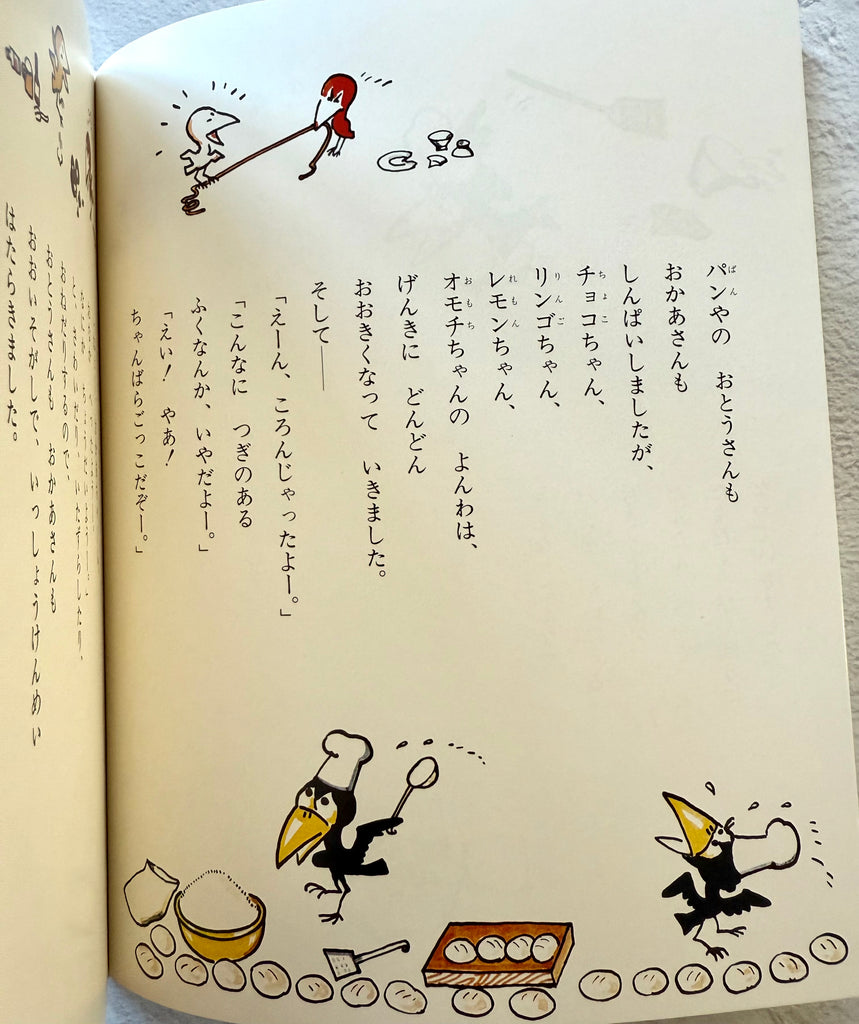 パンやの　おとうさんも
おかあさんも
しんぱいしましたが、
チョコちゃん、
リンゴちゃん、
レモンちゃん、
オモチちゃんの　よんわは、
げんきに　どんどん
おおきくなって　いきました。
そして――
「えーん、ころんじゃったよー。」
「こんなに　つぎのある
ふくなんか、いやだよー。」
「えい！　やあ！
ちゃんばらごっこだぞー。」
おねだりするので、
おとうさんも　おかあさんも
おおいそがしで、いっしょうけんめい
はたらきました。